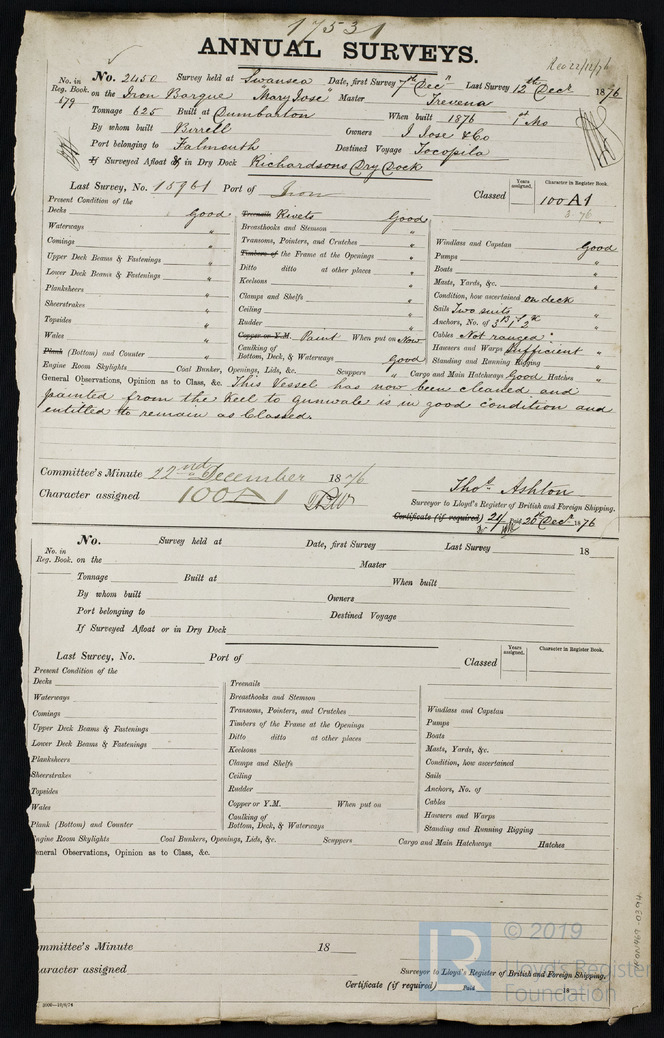 17531
ANNUAL SURVEYS.
Rec 22/12/76
No. in Reg. Book. 679
No. 2450 Survey held at Swansea Date, first Survey 7th Decr Last Survey 12th Decr 1876
on the Iron Barque "Mary Jose" Master Trevena
Tonnage 625 Built at Dumbarton When built 1876 1st Mo
By whom built Birrell Owners J Jose & Co
Port belonging to Falmouth Destined Voyage Tocopila
If Surveyed Afloat or in Dry Dock Richardsons Dry Dock
Last Survey, No. 15961 Port of Iron Classed
Years assigned.
Character in Register Book.
100 A1
3.76
Present Condition of the
Decks Good
Waterways "
Comings "
Upper Deck Beams & Fastenings "
Lower Deck Beams & Fastenings "
Planksheers "
Sheerstrakes "
Topsides "
Wales "
Plank (Bottom) and Counter "
Treenails Rivets Good
Breasthooks and Stemson "
Transoms, Pointers, and Crutches "
Timbers of the Frame at the Openings "
Ditto ditto at other places "
Keelsons "
Clamps and Shelfs "
Ceiling "
Rudder "
Copper or Y.M. Paint When put on Now
Caulking of
Bottom, Deck, & Waterways Good
Windlass and Capstan Good
Pumps "
Boats "
Masts, Yards, &c. "
Condition, how ascertained on deck
Sails Two suits
Anchors, No. of 3B 1S 2K
Cables Not ranged "
Hawsers and Warps Sufficient "
Standing and Running Rigging "
Engine Room Skylights Coal Bunker, Openings, Lids, &c. Scuppers " Cargo and Main Hatchways Good Hatches "
General Observations, Opinion as to Class, &c. This Vessel has now been cleaned and
painted from the keel to gunwale is in good condition and
entitled to remain as Classed.
Committee's Minute 22nd December 1876
Character assigned 100A1
Thos. Ashton
Surveyor to Lloyd's Register of British and Foreign Shipping.
Certificate (if required) Paid 20th Decr 1876
No. in Reg. Book.
No. Survey held at Date, first Survey Last Survey 18
on the Master
Tonnage Built at When built
By whom built Owners
Port belonging to Destined Voyage
If Surveyed Afloat or in Dry Dock
Last Survey, No. Port of Classed
Years assigned.
Character in Register Book.
Present Condition of the
Decks
Waterways
Comings
Upper Deck Beams & Fastenings
Lower Deck Beams & Fastenings
Planksheers
Sheerstrakes
Topsides
Wales
Plank (Bottom) and Counter
Treenails
Breasthooks and Stemson
Transoms, Pointers, and Crutches
Timbers of the Frame at the Openings
Ditto ditto at other places
Keelsons
Clamps and Shelfs
Ceiling
Rudder
Copper or Y.M. When put on
Caulking of
Bottom, Deck, & Waterways
Windlass and Capstan
Pumps
Boats
Masts, Yards, &c.
Condition, how ascertained
Sails
Anchors, No. of
Cables
Hawsers and Warps
Standing and Running Rigging
Engine Room Skylights Coal Bunkers, Openings, Lids, &c. Scuppers Cargo and Main Hatchways Hatches
eneral Observations, Opinion as to Class, &c.
ommittee's Minute 18
aracter assigned
Surveyor to Lloyd's Register of British and Foreign Shipping.
Certificate (if required) Paid 18
2000—10/6/74
LR © 2019
Lloyd's Register
Foundation